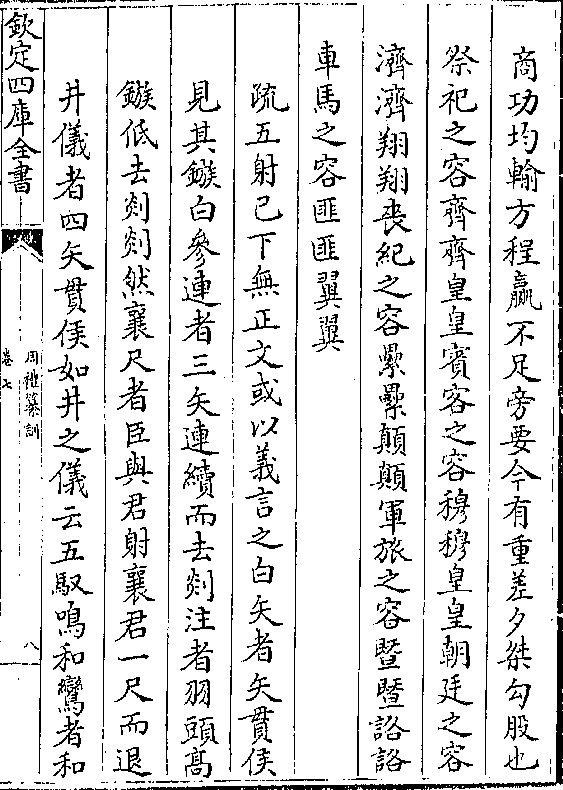 商功均輸方程贏不足旁要今有重差夕桀勾股也
祭祀之容齊齊皇皇賓客之容穆穆皇皇朝廷之容
濟濟翔翔喪紀之容纍纍顛顛軍旅之容暨暨詻詻
車馬之容匪匪翼翼
疏五射已下無正文或以義言之白矢者矢貫侯
見其鏃白參連者三矢連續而去剡注者羽頭髙
鏃低去剡剡然襄尺者臣與君射襄君一尺而退
井儀者四矢貫侯如井之儀云五馭鳴和鸞者和
欽定四庫全書
周禮纂訓
卷七
八